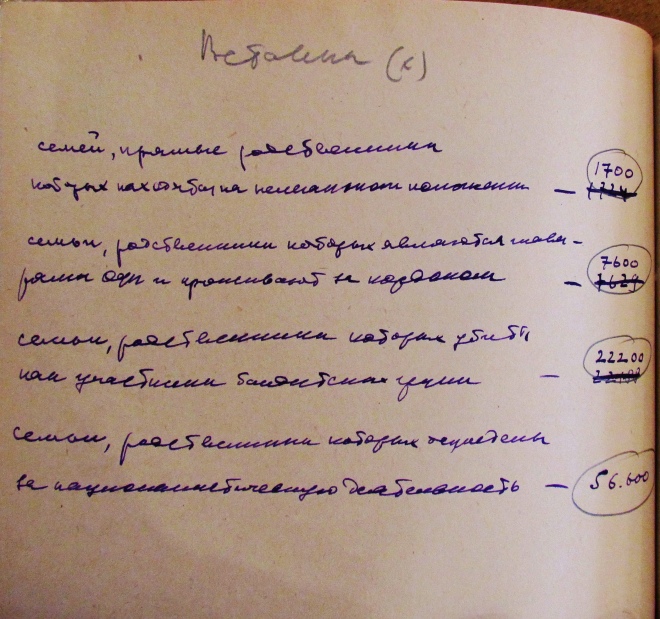 Вставка (к)
семей, прямые родственники
которых находятся на нелегальном положении — 1700
семьи, родственники которых являются глава-
рями ОУН и проживают за кордоном — 7600
семьи, родственники которых убиты
как участники бандитских групп — 22200
семьи, родственники которых осуждены
за националистическую деятельность — 56.600